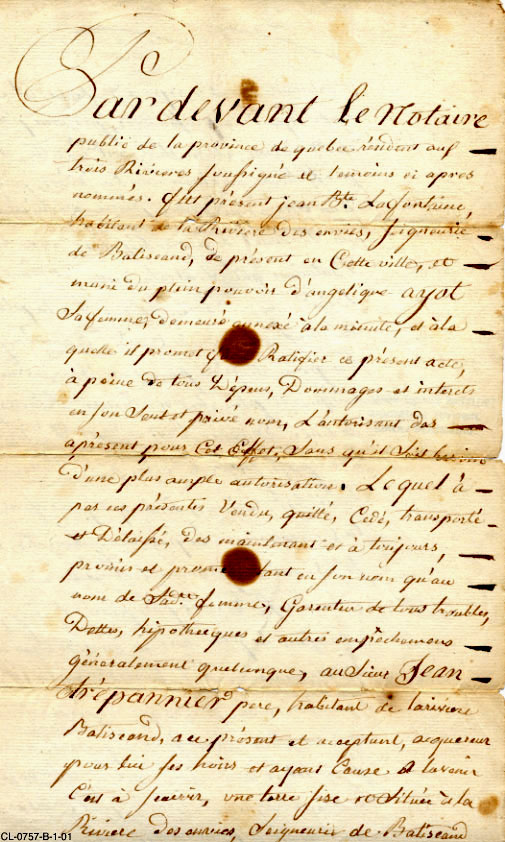 Pardevant le Notaire
public de la province de quebec résident aux
trois Rivieres soussigné et temoins ci apres
nommés. fut présent jean Bte. Lafontaine,
habitant de la Riviere des envies, seigneurie
de Batiscand, de présent en Cette ville, et
muni du plein pouvoir d'angelique ayot
sa femme, demeuré annexé à la minute, et à la
quelle il promet Ratifier ce présent acte,
à peine de tous Dépens, Dommages et interets
en son seul et privé nom, L'autorisant des
aprésent pour Cet Effet, sans qu'il soit besoin
d'une plus ample autorisation. Lequel à
par ces présentes Vendu, quitté, Cedé, transporté
et Délaissé, des maintenant et à toujours,
promis et promet tant en son nom qu'au
nom de Sade. femme, Garantir de tous troubles,
Dettes, hipotheques et autres empechemens
généralement quelconque, au Sieur Jean
trépannier pere, habitant de la riviere
Batiscand, a ce présent et acceptant, acquereur
pour lui ses hoirs et ayant Cause a lavenir
C'est à sçavoir, une terre sise et située à la
Riviere des envies, Seigneurie de Batiscand
CL-0757-B-1-01